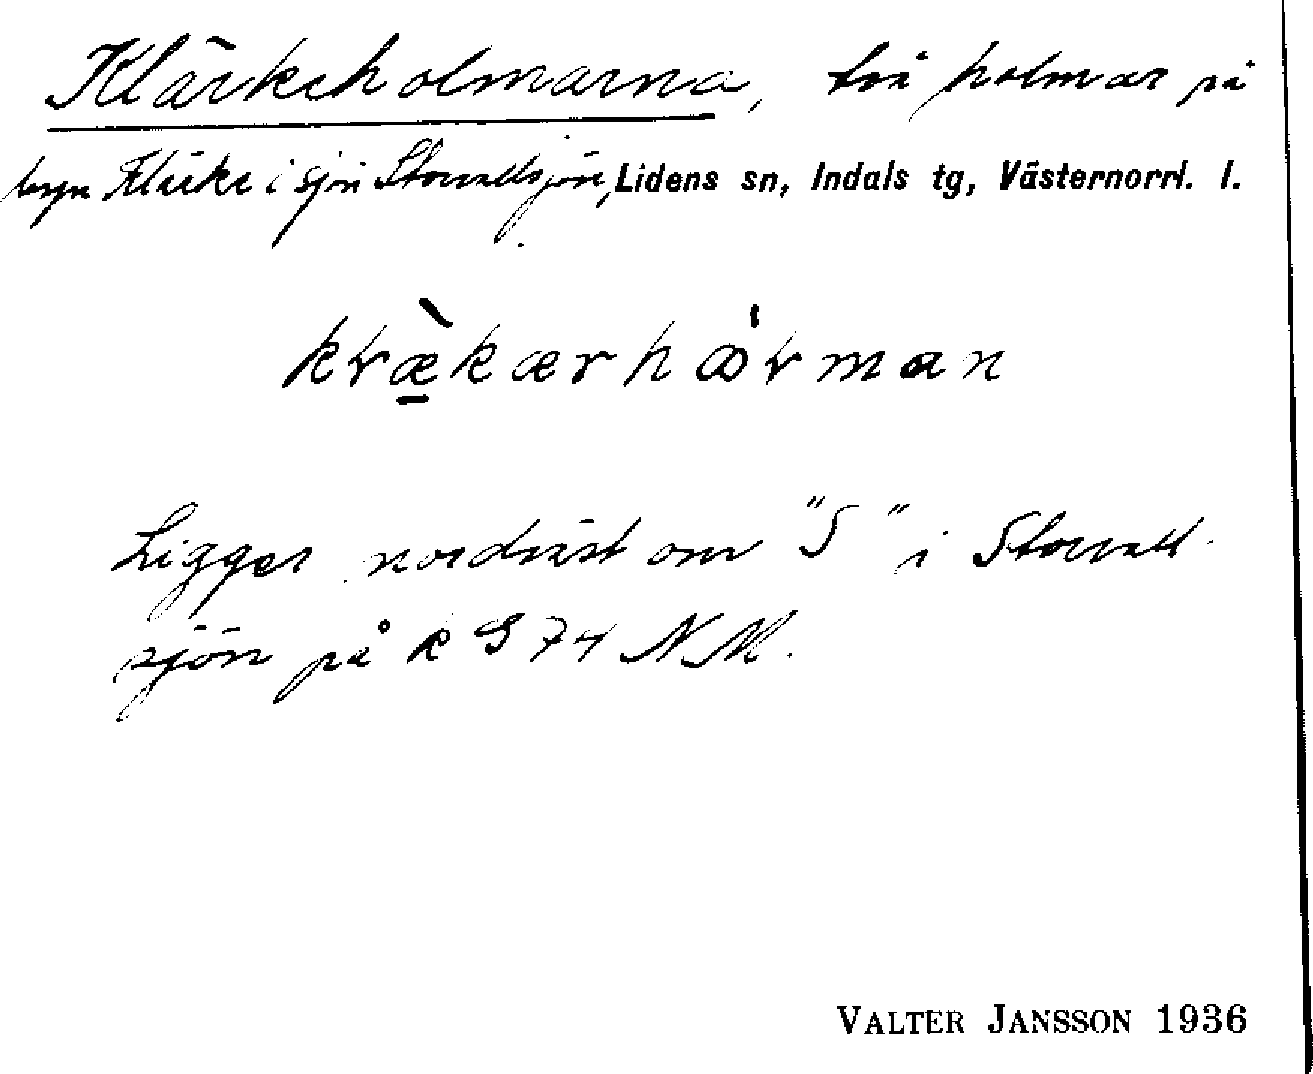 Klärkeholmarna, två holmar på
byn Klärke i sjön Storvallsjön, Lidens sn, Indals tg, Västernorrl. l.
krækærhåvrman
Ligger nordväst om "S" i Storvall-
sjön på k G 74 NM.
VALTER JANSSON 1936